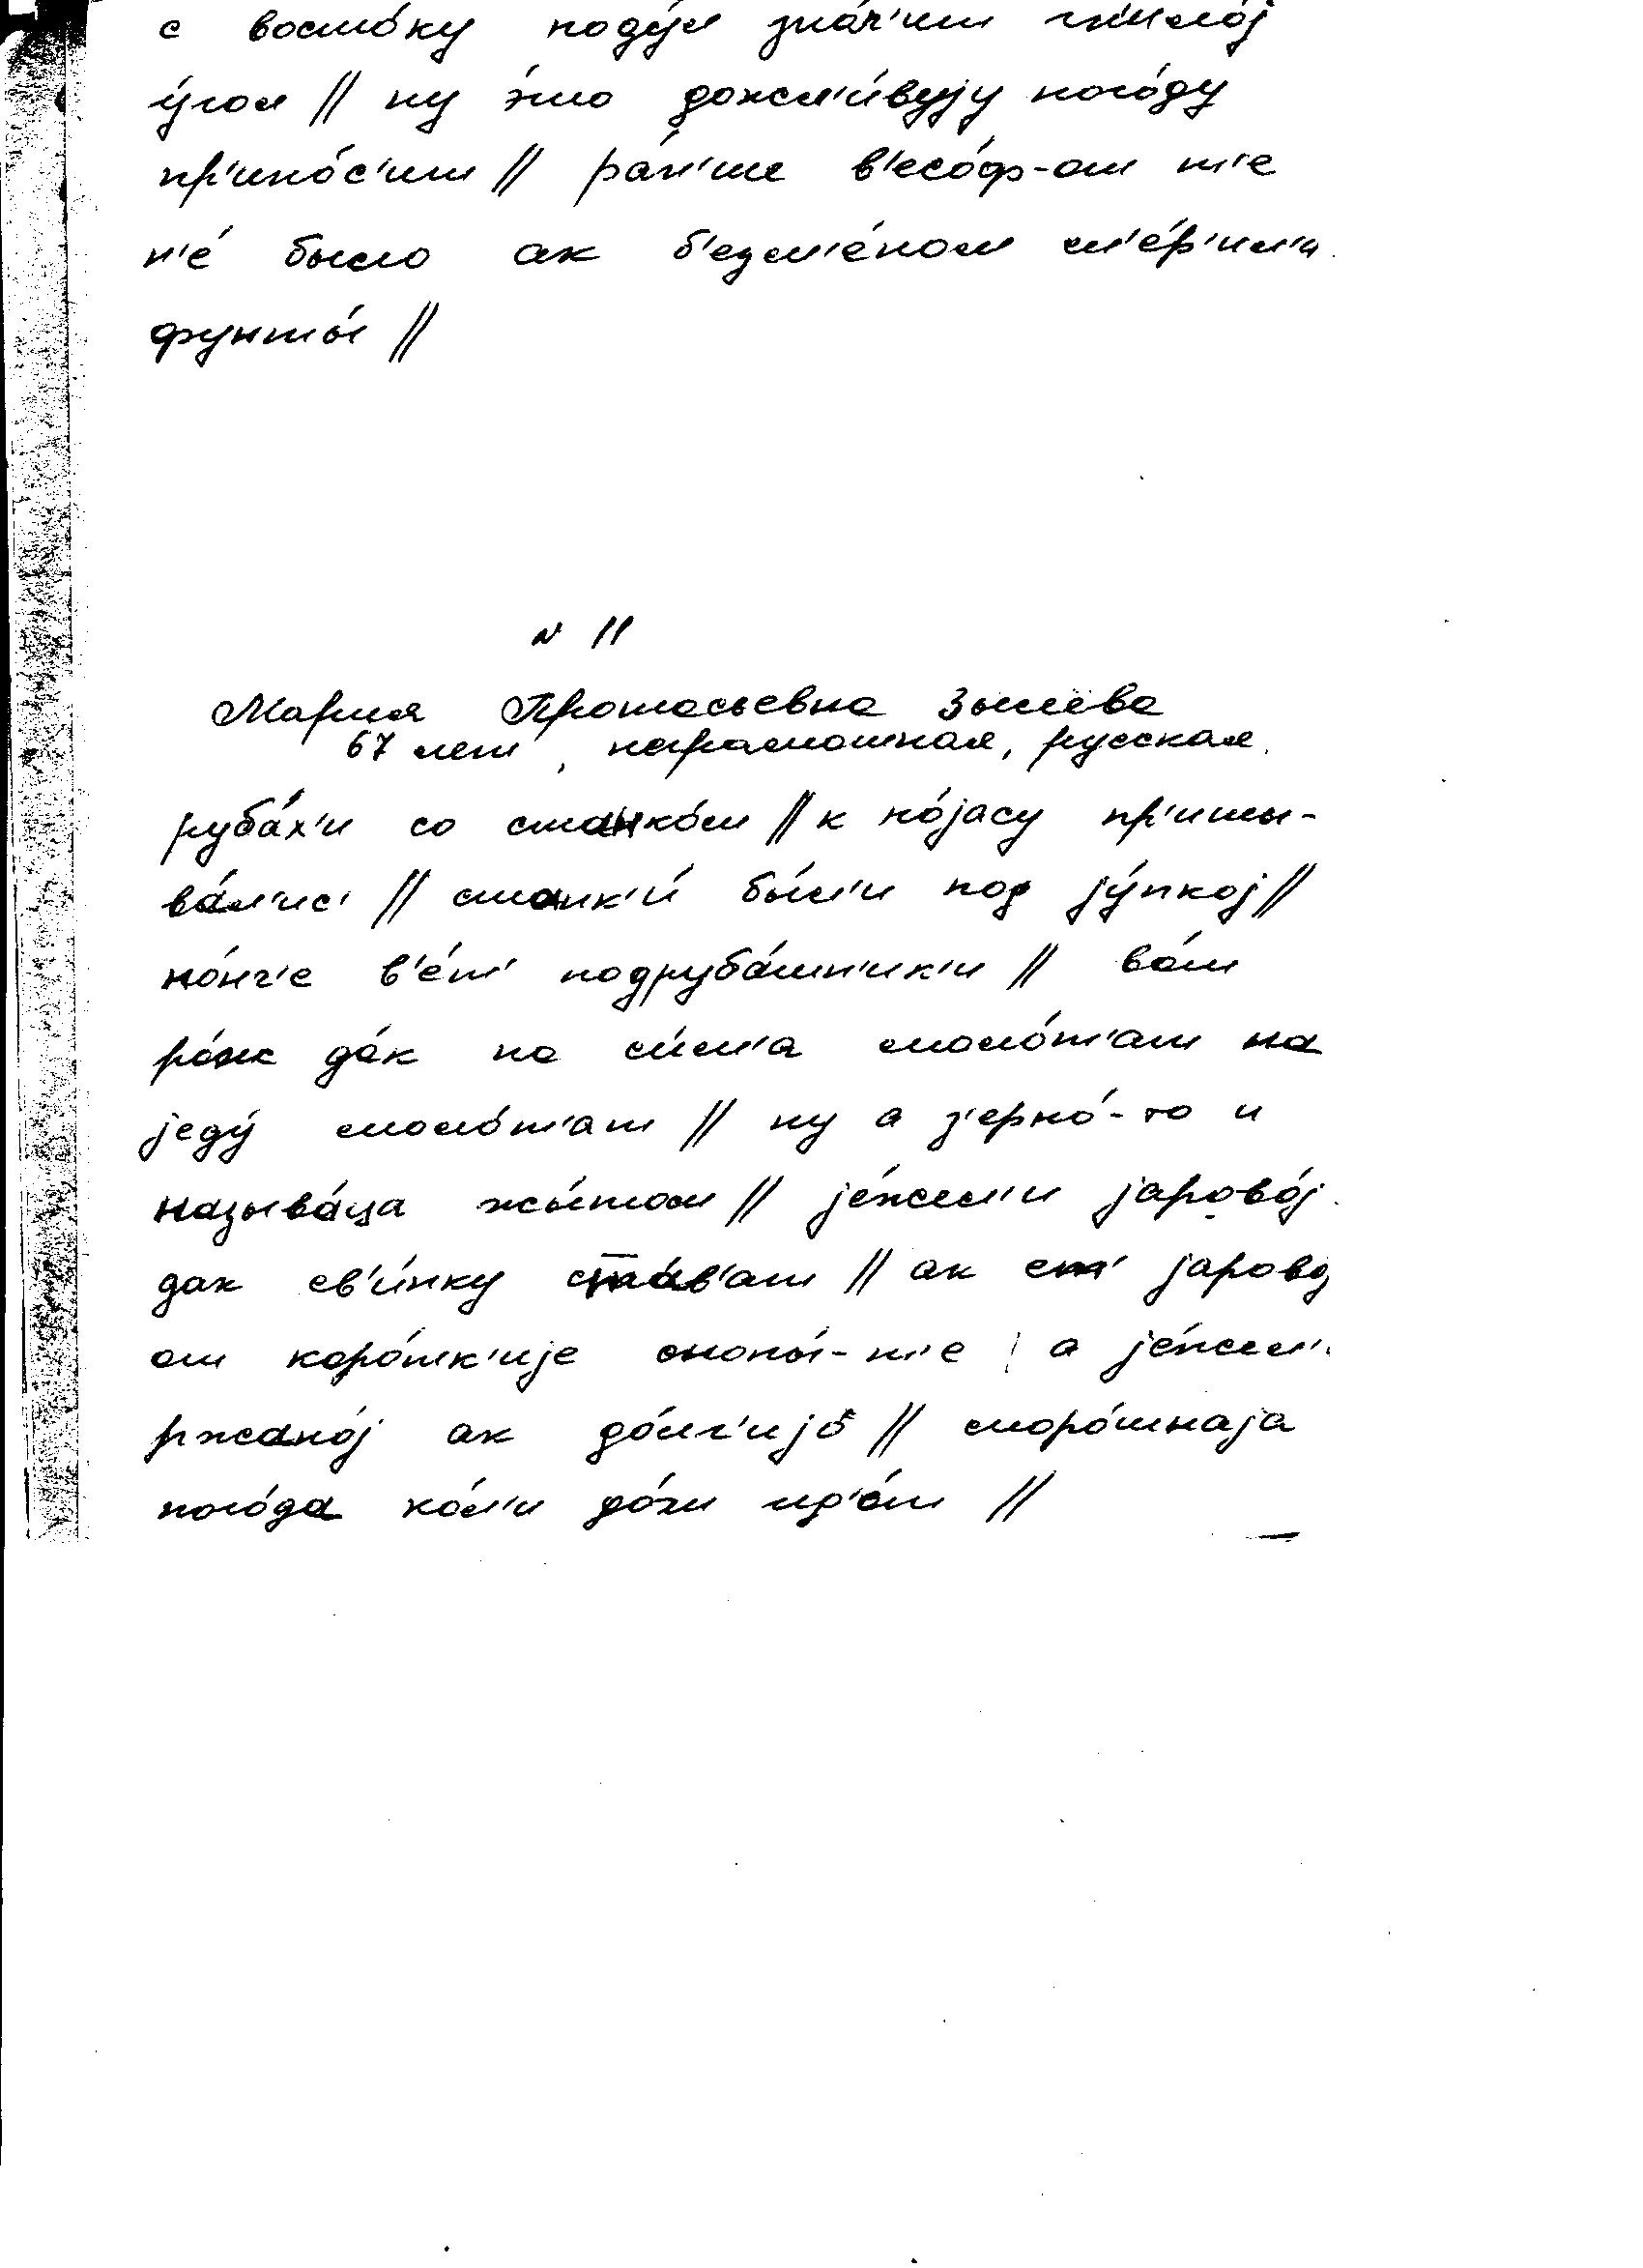 с восто́ку поду́л зна́ч'ит гн'ило́j
у́гол // ну э́то дожл'и́вуjу пого́ду
пр'ино́с'ит // ра́н'ше в'есо́ф-от т'е
н'е́ было ак б'езм'е́ном м'е́р'ил'и
фунты́ //
№ 11
Мария Протасьевна Зылёва
67 лет, неграмотная, русская.
руба́х'и со станко́м // к по́jасу пр'ишы-
ва́л'ис' // станк'и́ бы́л'и под jу́пкоj //
но́нч'е в'е́т' подруба́шн'ик'и // во́т
ро́ж да́к на с'и́м'а моло́т'ат на
jеду́ моло́т'ат // ну а з'ерно́-то и
называ́ца жы́том // jе́жл'и jарово́j
дак св'и́нку ста́в'ат // ак ст' jаровоj
от коро́тк'иjе снопы́-т'е | а jе́жл'и
ржано́j ак до́лг'иjо // моро́шнаjа
пого́да ко́л'и до́ж ид'о́т //